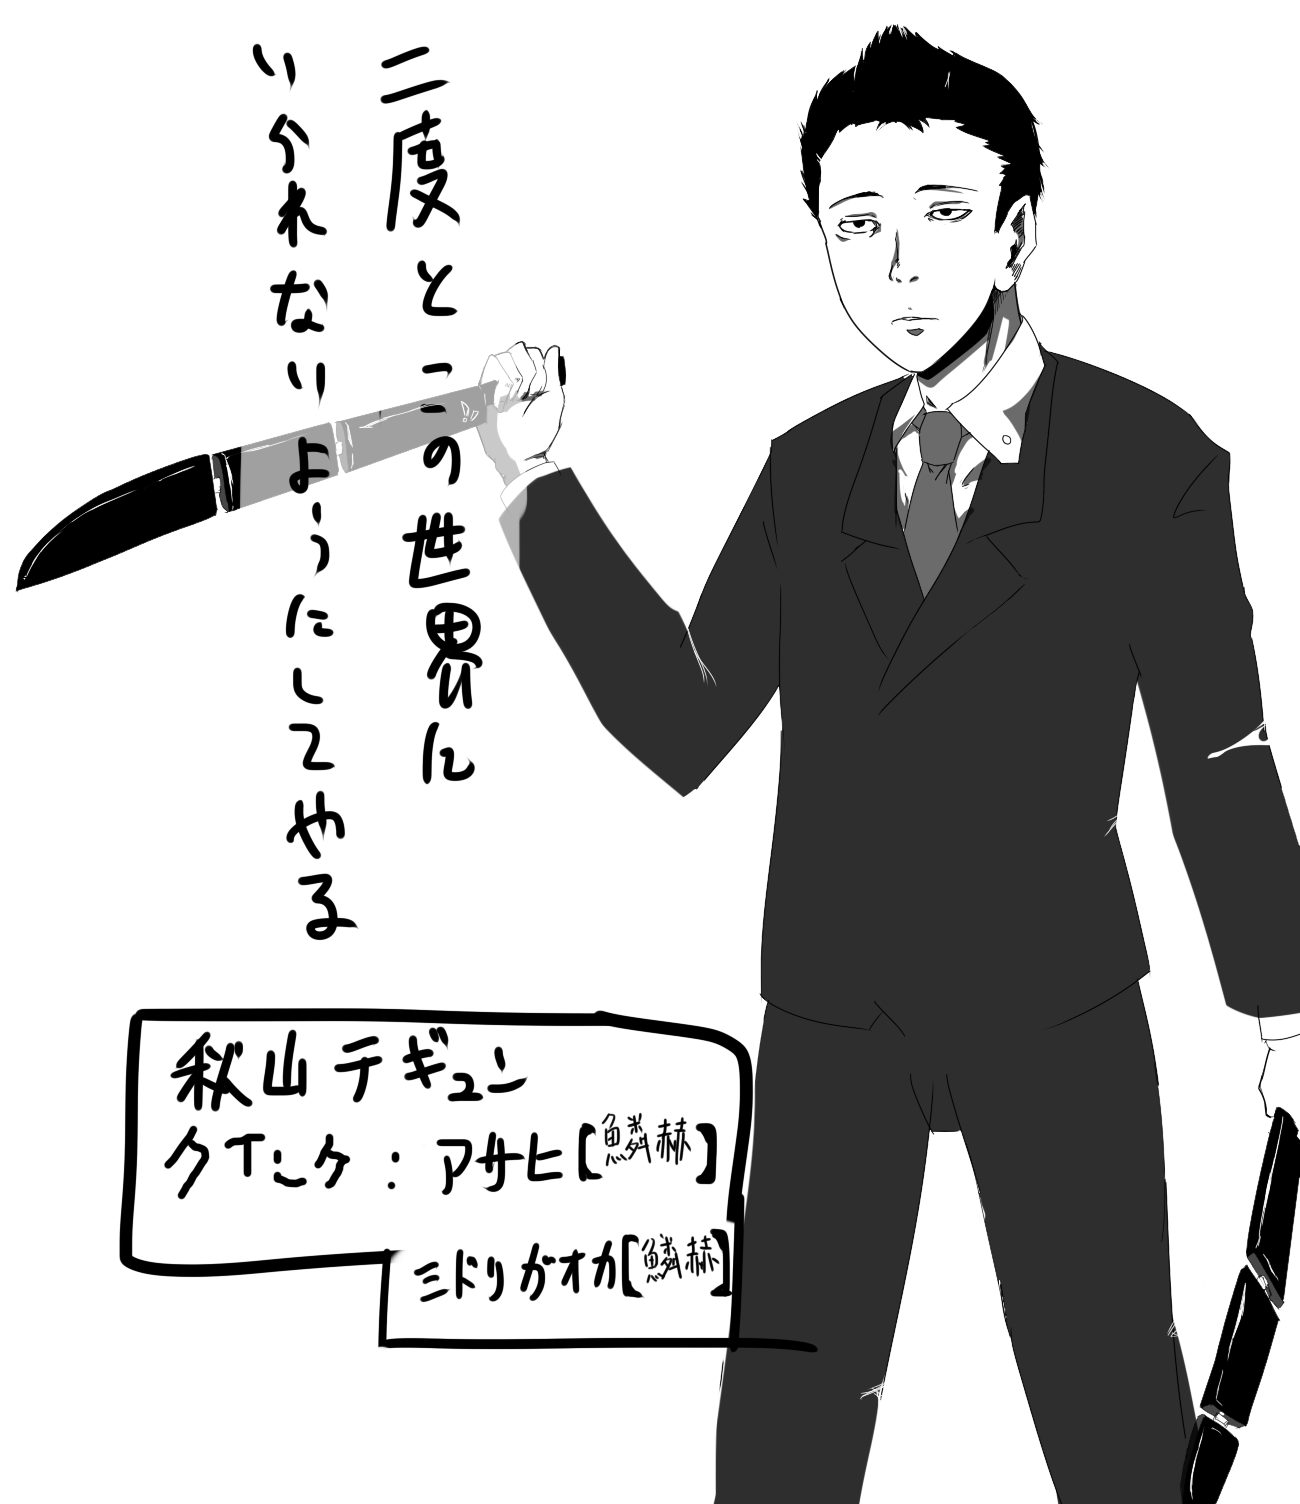 二度とこの世界に
いかれないようにしてやる
秋山テギュン
クインケ:アサヒ【鱗赫】
ミドリガオカ【鱗赫】